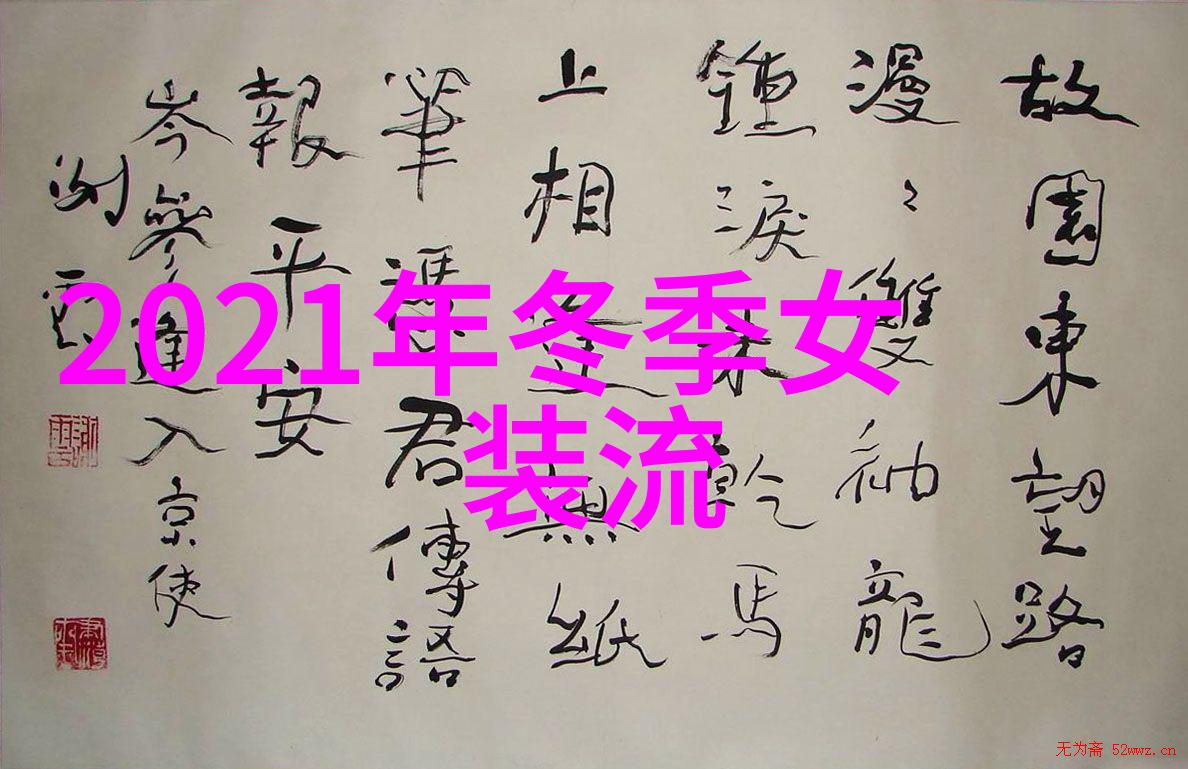 故園東望路
漫々雙袖龍
鍾淚未乾馬
上相逢無紙
筆憑君傳語
報平安
岑參逢入京使
2021年冬季女
装流
无为斋 52wwz.cn